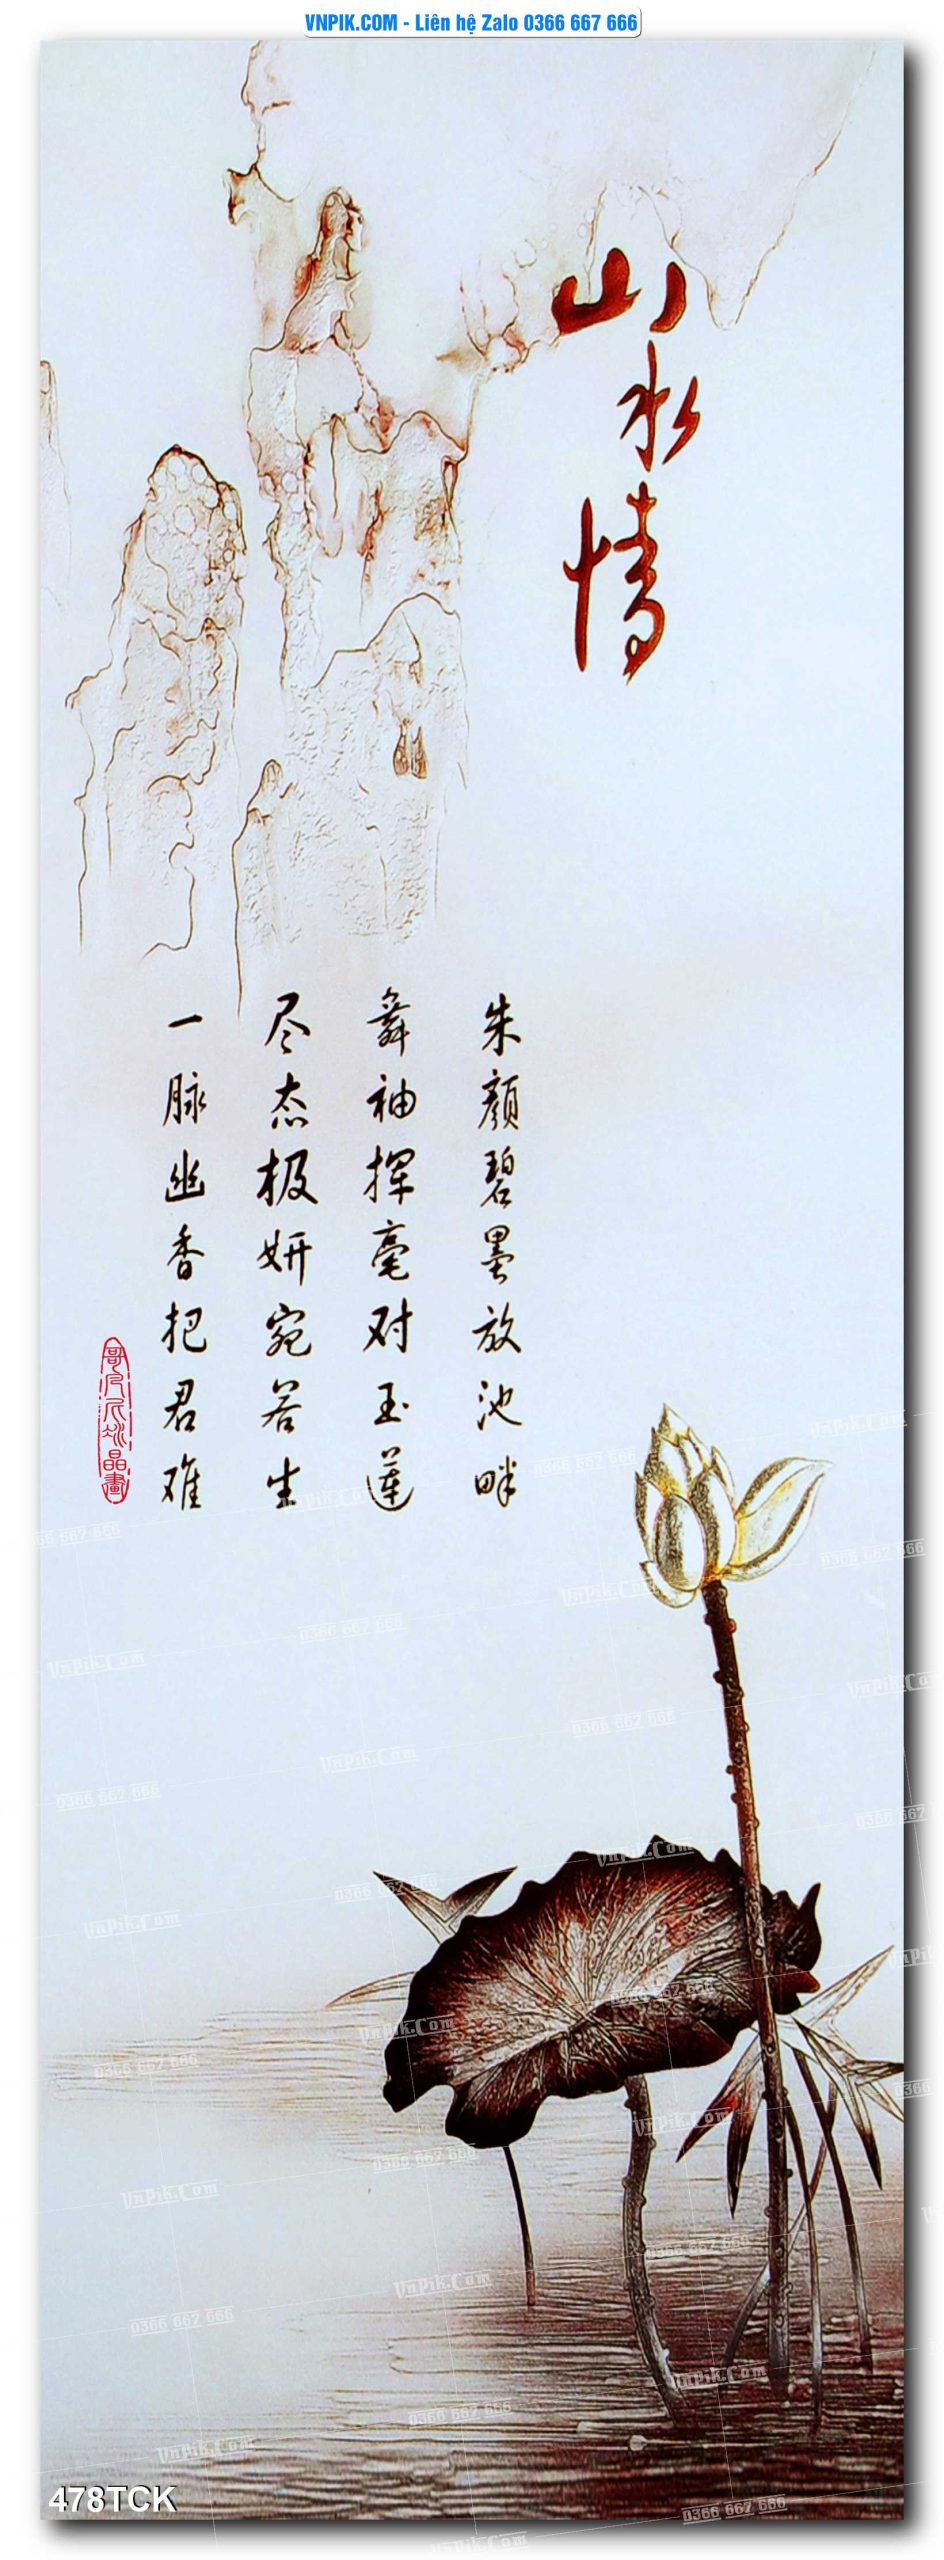 VNPIK.COM - Liên hệ Zalo 0366 667 666
山水情
朱颜碧墨放池畔
舞袖挥毫对玉莲
尽态极妍宛若生
一脉幽香把君难
478TCK